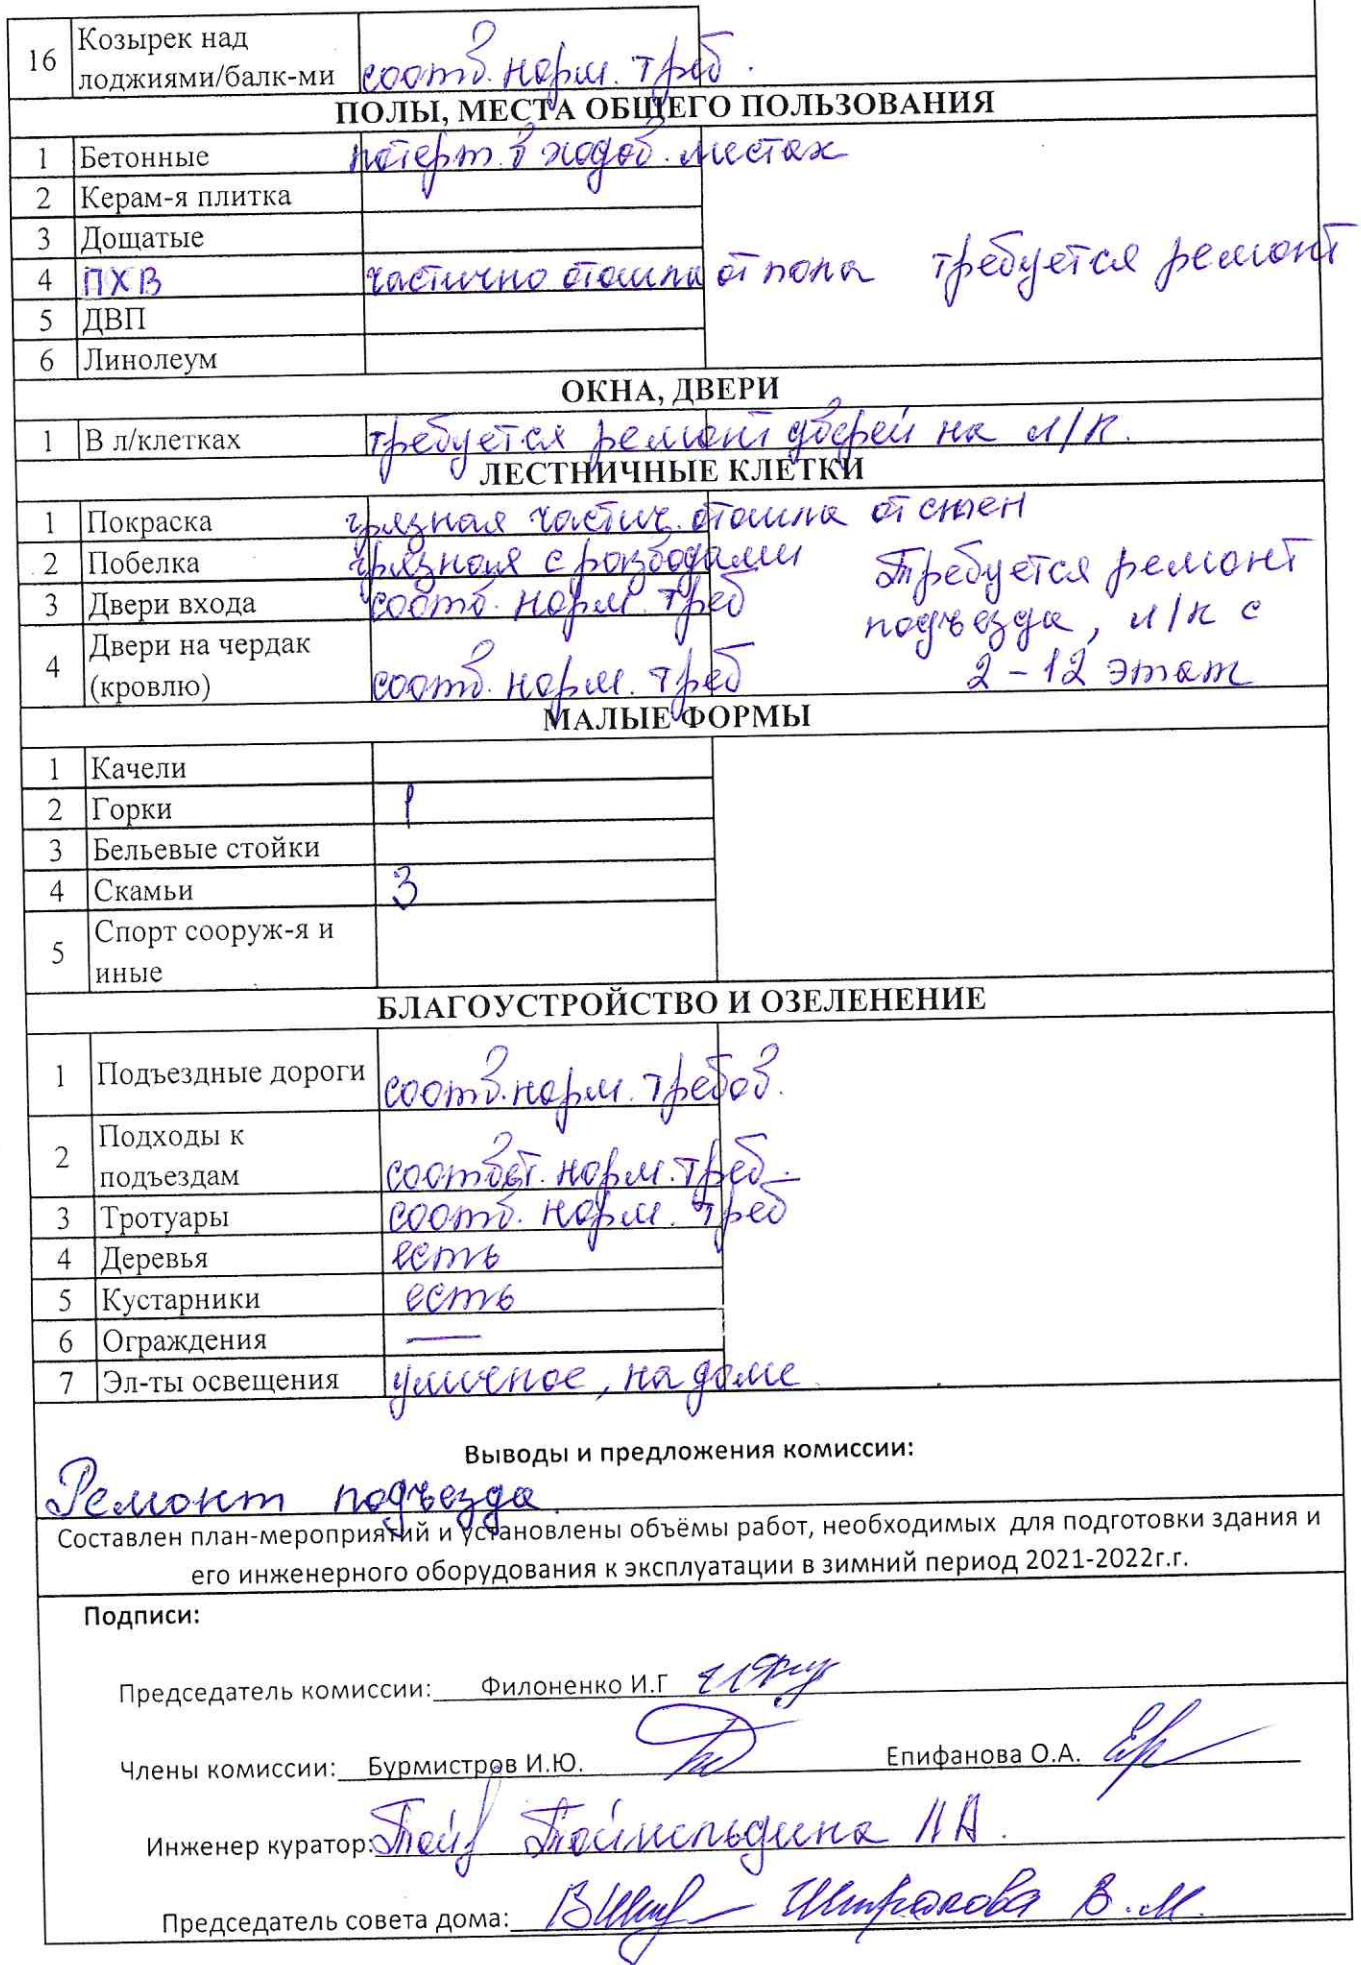 16 Козырек над
лоджиями/балк-ми соотв. норм. треб.
ПОЛЫ, МЕСТА ОБЩЕГО ПОЛЬЗОВАНИЯ
1 Бетонные потерт. в ходов. местах
2 Керам-я плитка
3 Дощатые
4 ПХВ частично отошла от пола требуется ремонт
5 ДВП
6 Линолеум
ОКНА, ДВЕРИ
1 В л/клетках требуется ремонт дверей на л/к.
ЛЕСТНИЧНЫЕ КЛЕТКИ
1 Покраска грязная частич. отошла от стен
2 Побелка грязная с розводами Требуется ремонт
3 Двери входа соотв. норм. треб подъезда, л/к с
4 Двери на чердак
(кровлю) соотв. норм. треб 2-12 этаж
МАЛЫЕ ФОРМЫ
1 Качели
2 Горки 1
3 Бельевые стойки
4 Скамьи 3
5 Спорт сооруж-я и
иные
БЛАГОУСТРОЙСТВО И ОЗЕЛЕНЕНИЕ
1 Подъездные дороги соотв. норм. требов.
2 Подходы к
подъездам соответ. норм. треб.
3 Тротуары соотв. норм. треб
4 Деревья есть
5 Кустарники есть
6 Ограждения —
7 Эл-ты освещения уличное, на доме
Выводы и предложения комиссии:
Ремонт подъезда.
Составлен план-мероприятий и установлены объёмы работ, необходимых для подготовки здания и
его инженерного оборудования к эксплуатации в зимний период 2021-2022г.г.
Подписи:
Председатель комиссии: Филоненко И.Г
Члены комиссии: Бурмистров И.Ю. Епифанова О.А.
Инженер куратор: Тойгильдина Л А.
Председатель совета дома: В. М.